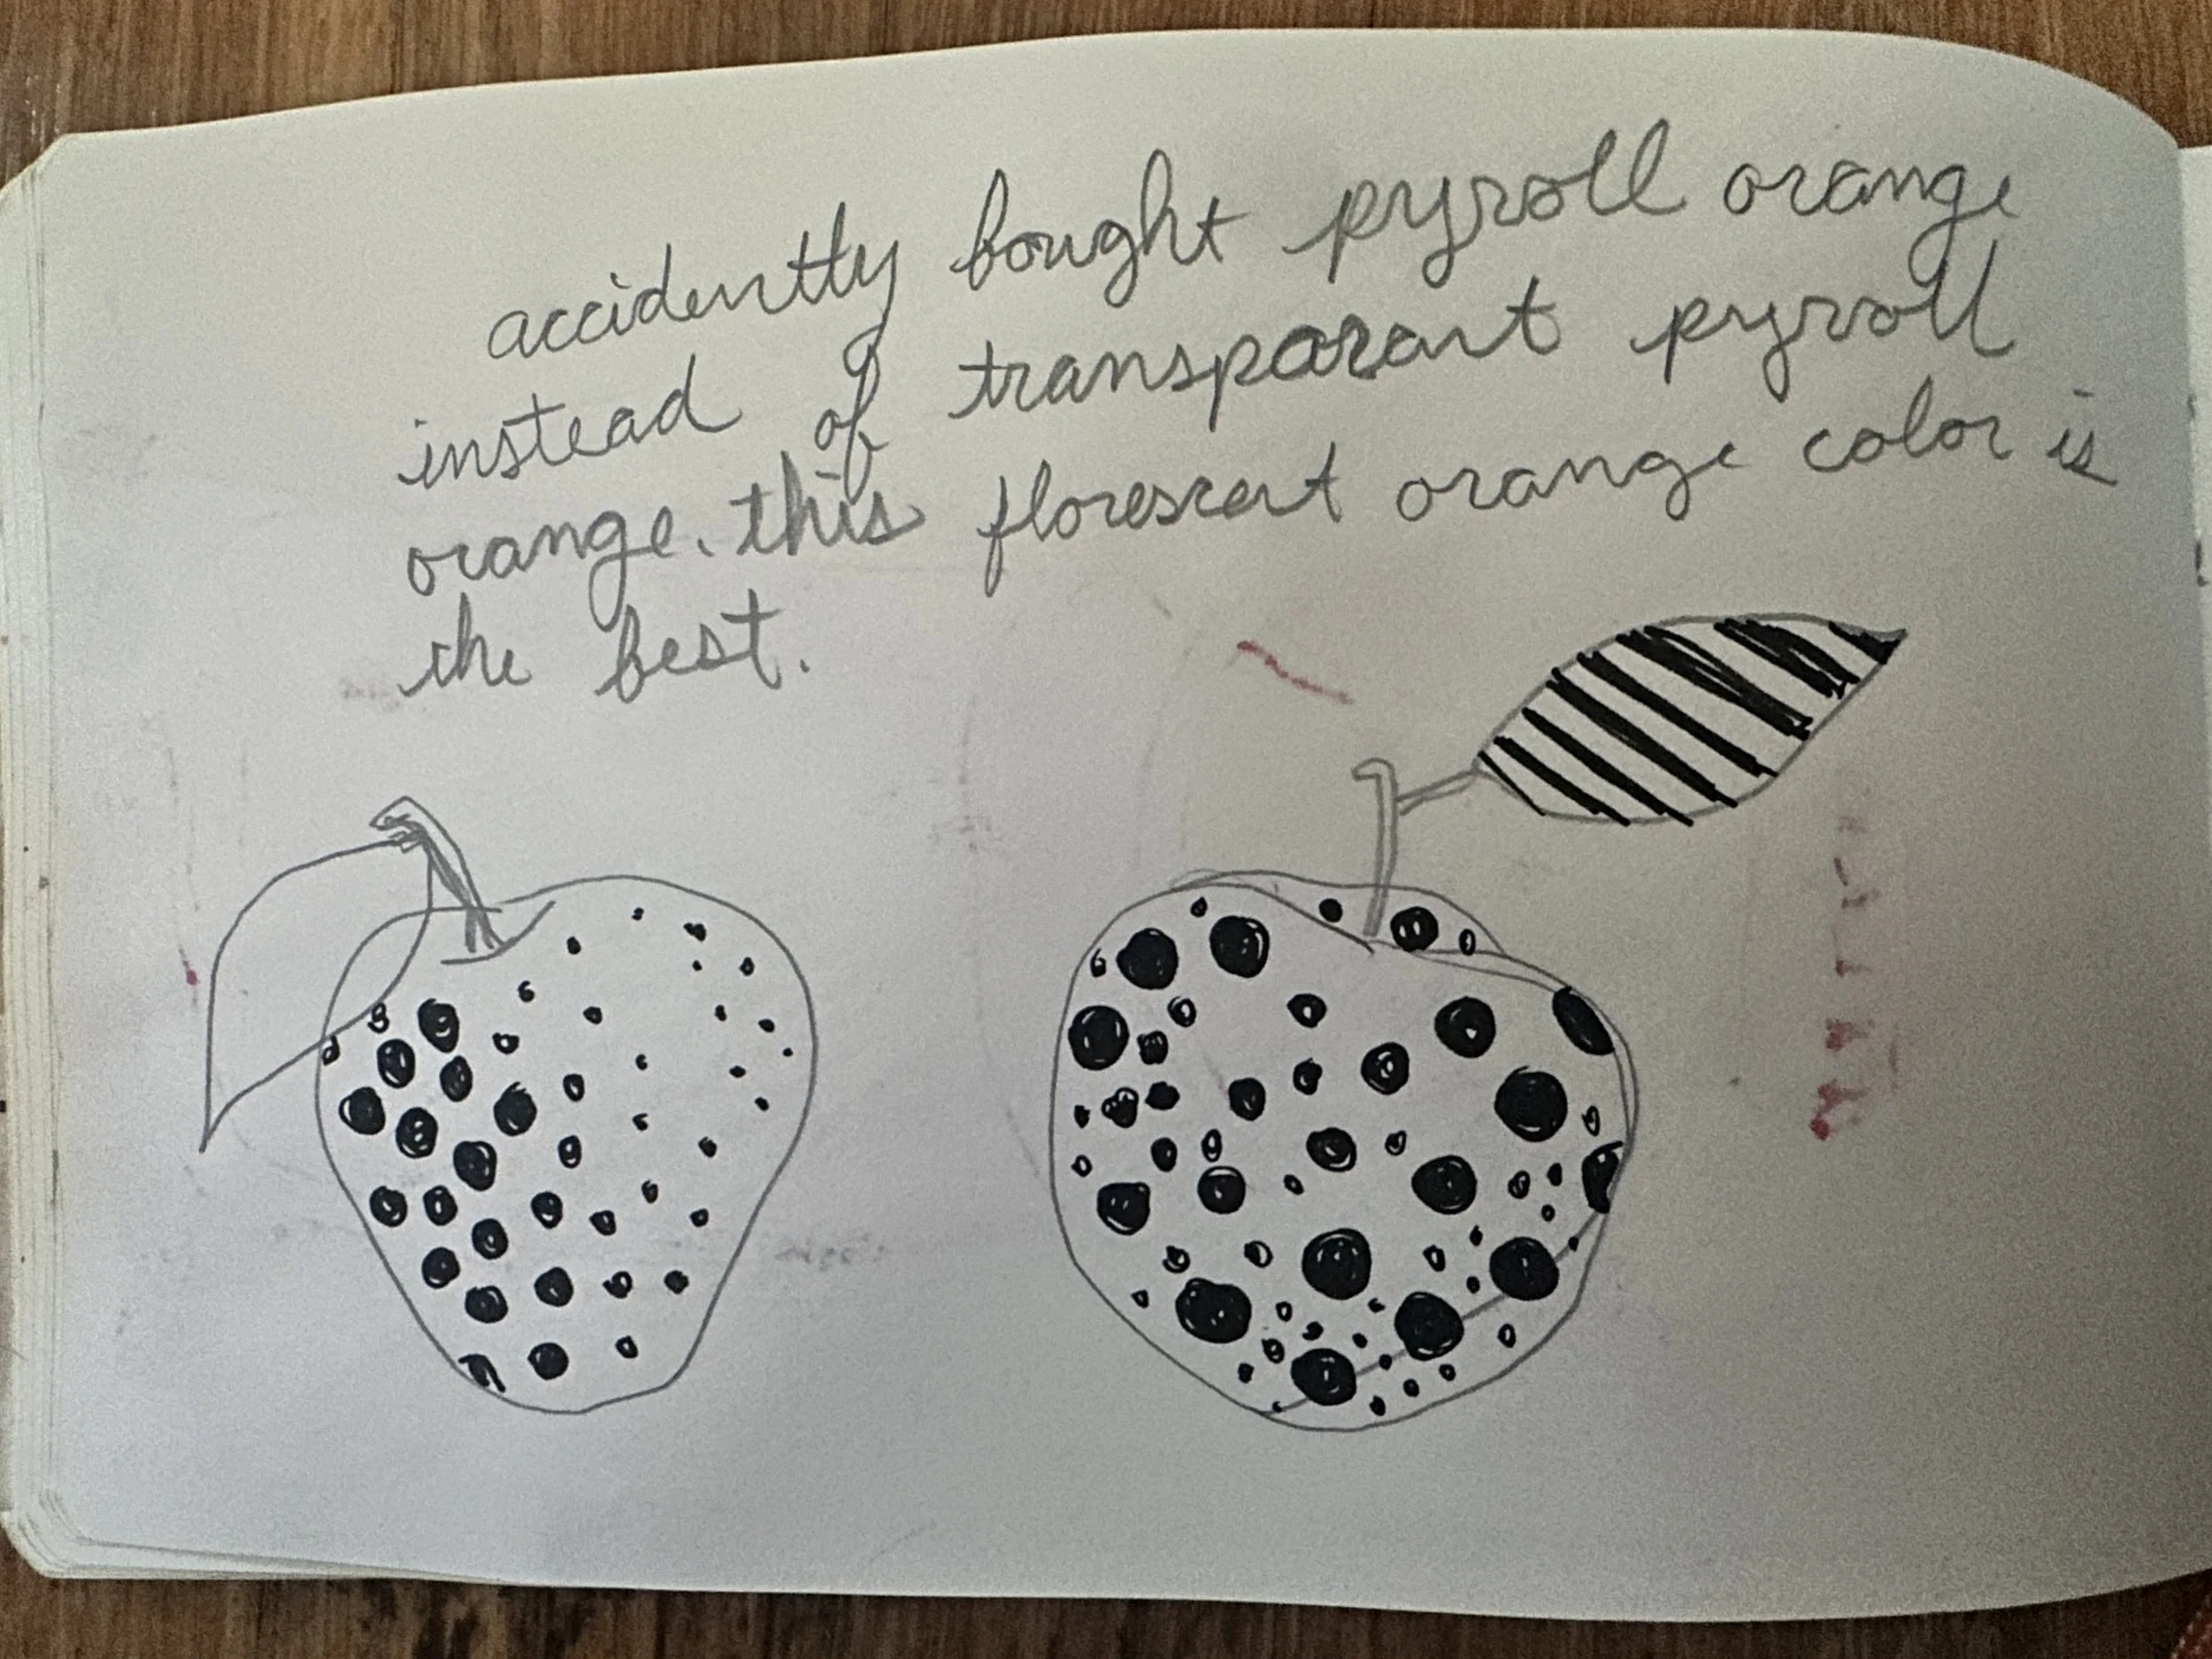 accidently bought pyroll orange
instead of transparant pyroll
orange. this florescent orange color is
the best.